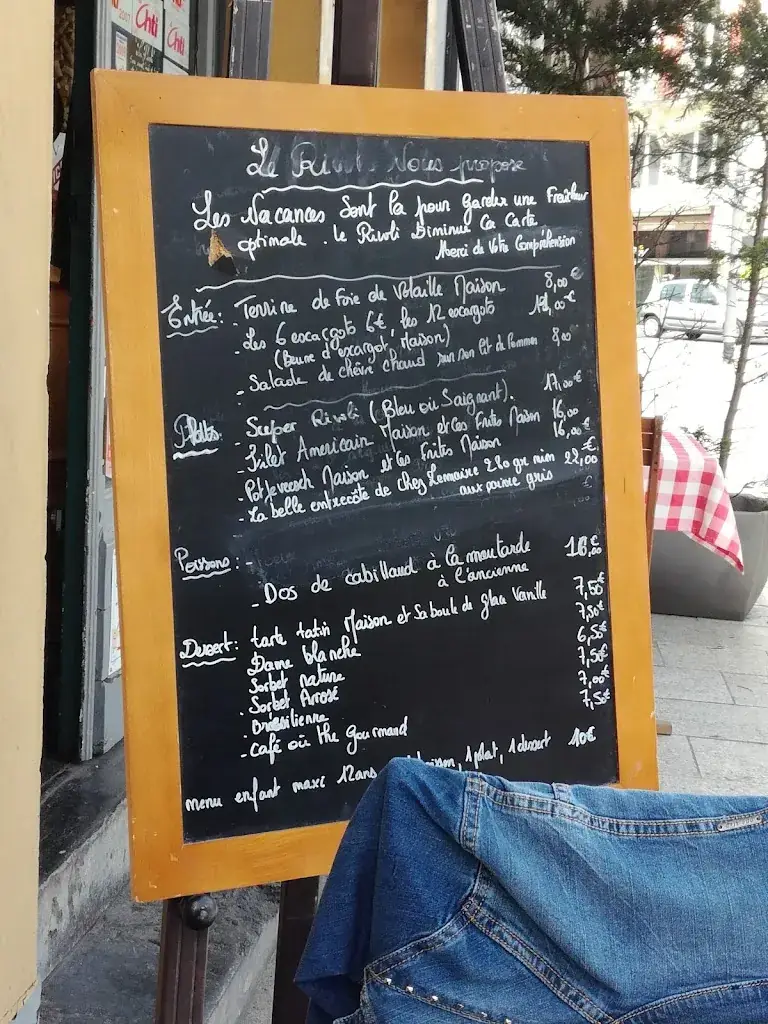 2007
Chti
Chti
Le Rivoli Nous propose
Les Vacances Sont la pour garder une Fraîcheur
optimale . Le Rivoli Diminue Ca Carte
Merci de Votre Compréhension
Entrée : Terrine de foie de Volaille Maison 8,00€
- Les 6 escargots 6€, les 12 escargots 12,00€
(Beurre d'escargot Maison)
- Salade de chèvre chaud sur son lit de Pommes 8,00
Plats - Super Rivoli (Bleu où Saignant). 17,00€
- Filet Americain Maison et Ces Frites Maison 16,00
- Potjevleesch Maison et Ces Frites Maison 16,00€
- La belle entrecôte de chez Lemaire 280 gr min 22,00€
aux poivre gris €
Poissons : -
- Dos de cabillaud à la moutarde 18,00€
à l'ancienne
Dessert : tarte tatin Maison et Sa boule de glace Vanille 7,50€
Dame blanche 7,50€
Sorbet nature 6,50€
- Sorbet Arrosé 7,50€
- Brésilienne 7,00€
- Café où the gourmand 7,50€
menu enfant maxi 12ans 1 plat, 1 dessert 10€